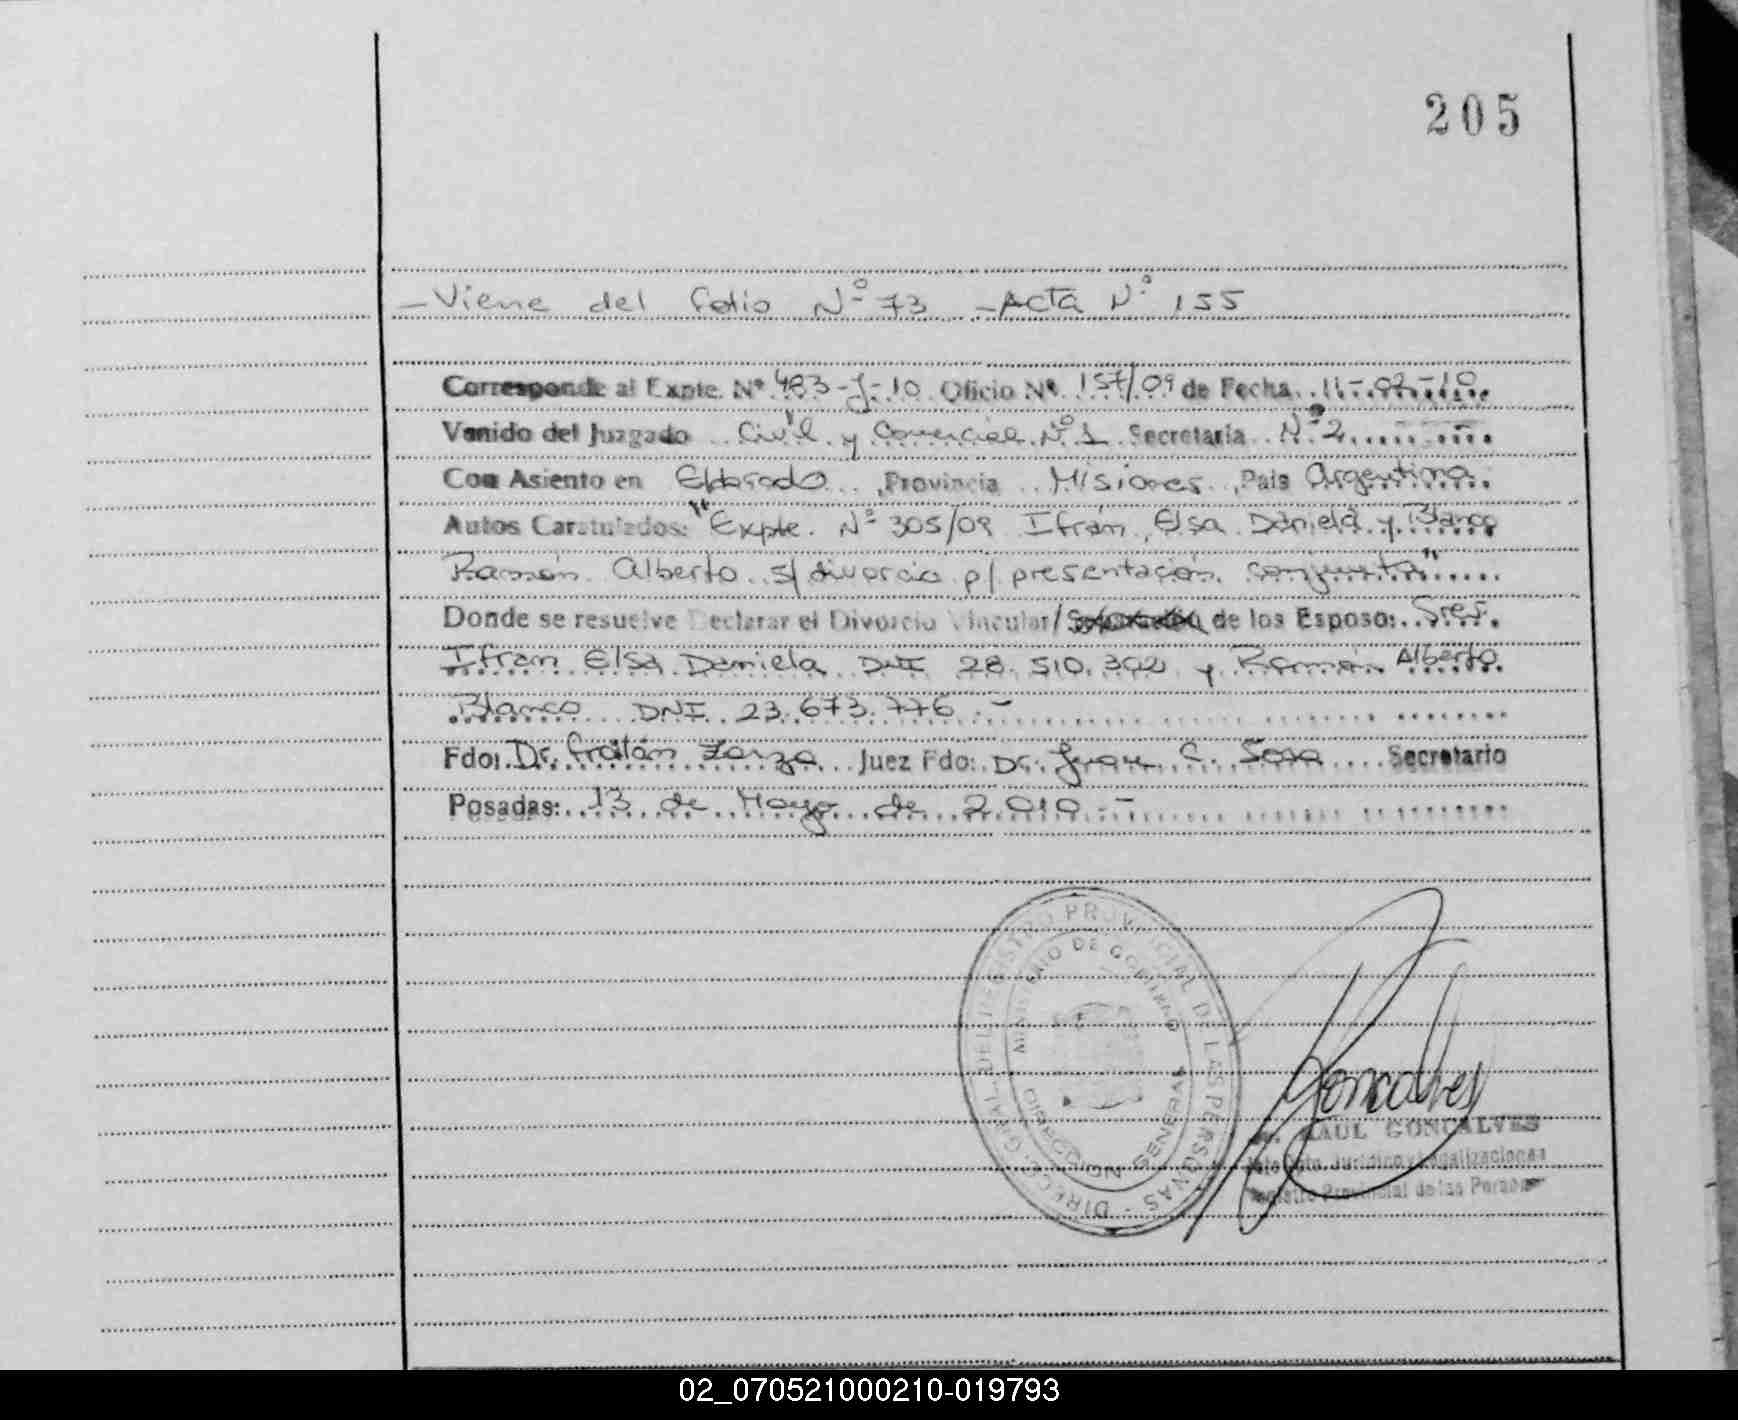 205
-Viene del folio Nº 73 - Acta Nº 155
Corresponde al Expte. Nº 483-J-10 Oficio Nº 157/09 de Fecha 11-02-10
Venido del Juzgado Civil y Comercial Nº 1 Secretaria Nº 2
Con Asiento en Eldorado, Provincia Misiones, Pais Argentina
Autos Caratulados: "Expte. Nº 305/09 Ifrán, Elsa Daniela y Blanco
Ramón Alberto s/divorcio p/ presentación conjunta"
Donde se resuelve Declarar el Divorcio Vincular/ de los Esposo: Sres.
Ifran Elsa Daniela DNI 28.510.392 y Ramón Alberto
Blanco DNI 23.673.776.-
Fdo: Dr. Zarza Juez Fdo: Dr. Juan C. Sosa Secretario
Posadas: 13 de Mayo de 2.010.-
DIREC. GRAL. DEL REGISTRO PROVINCIAL DE LAS PERSONAS
MINISTERIO DE GOBIERNO
Goncalves
RAUL GONCALVES
Dpto. Jurídico y Legalizaciones
Registro Provincial de las Personas
02_070521000210-019793